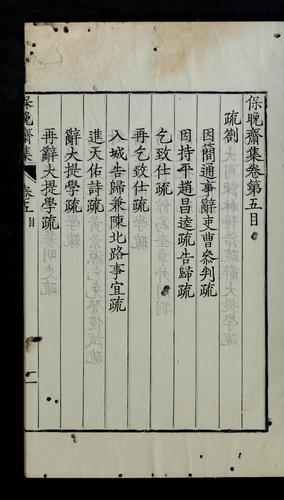 保晚齋集卷第五目
疏劄
因簡通事辭吏曹叅判疏
因持平趙昌逵疏告歸疏
乞致仕疏
再乞致仕疏
入城告歸兼陳北路事宜疏
進天佑詩疏
辭大提學疏
再辭大提學疏
保晚齋集
卷五目
一